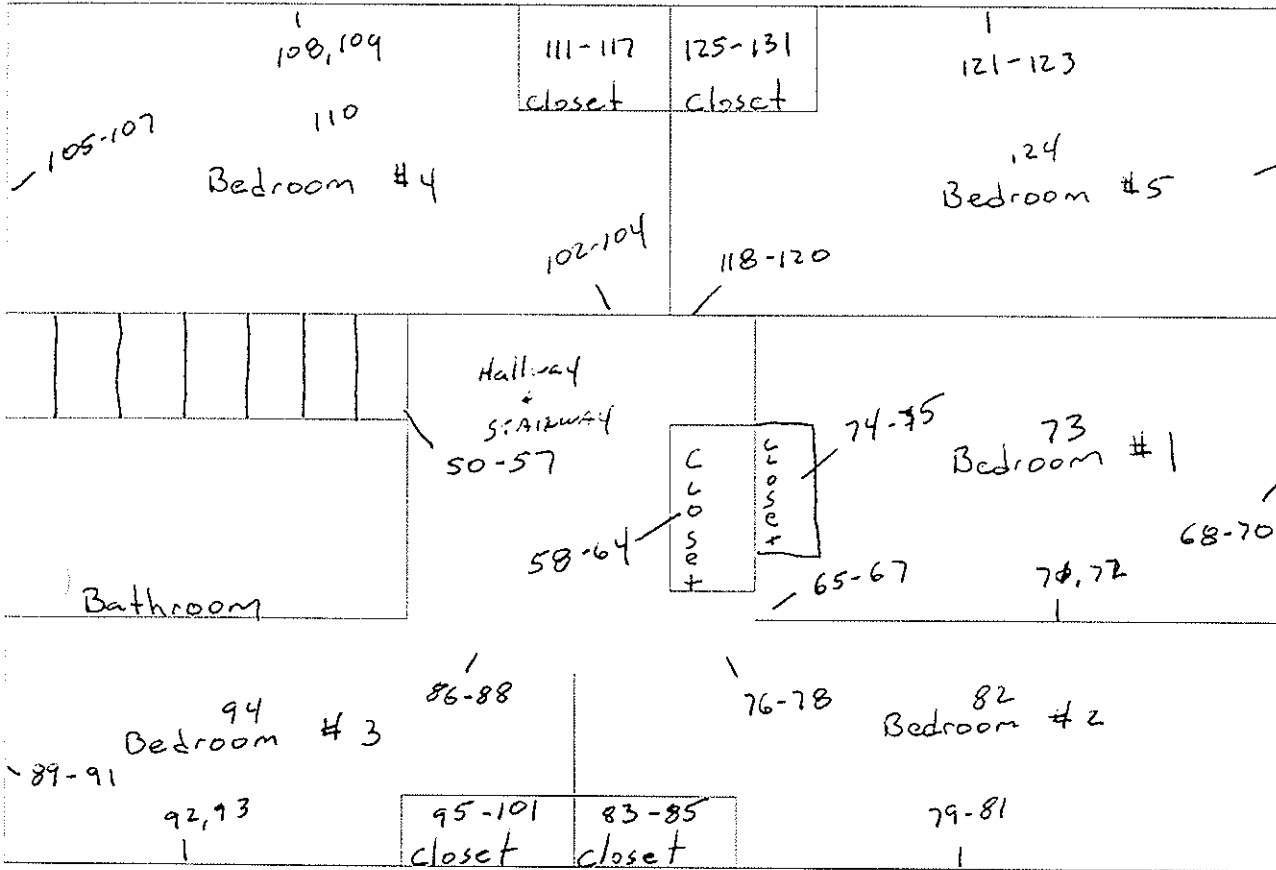 108,109
111-117
closet
125-131
closet
121-123
105-107
110
Bedroom #4
124
Bedroom #5
102-104
118-120
Hallway
+
STAIRWAY
50-57
Closet
58-64
closet
74-75
73
Bedroom #1
68-70
65-67
71,72
Bathroom
86-88
76-78
94
Bedroom #3
82
Bedroom #2
89-91
92,93
95-101
closet
83-85
closet
79-81